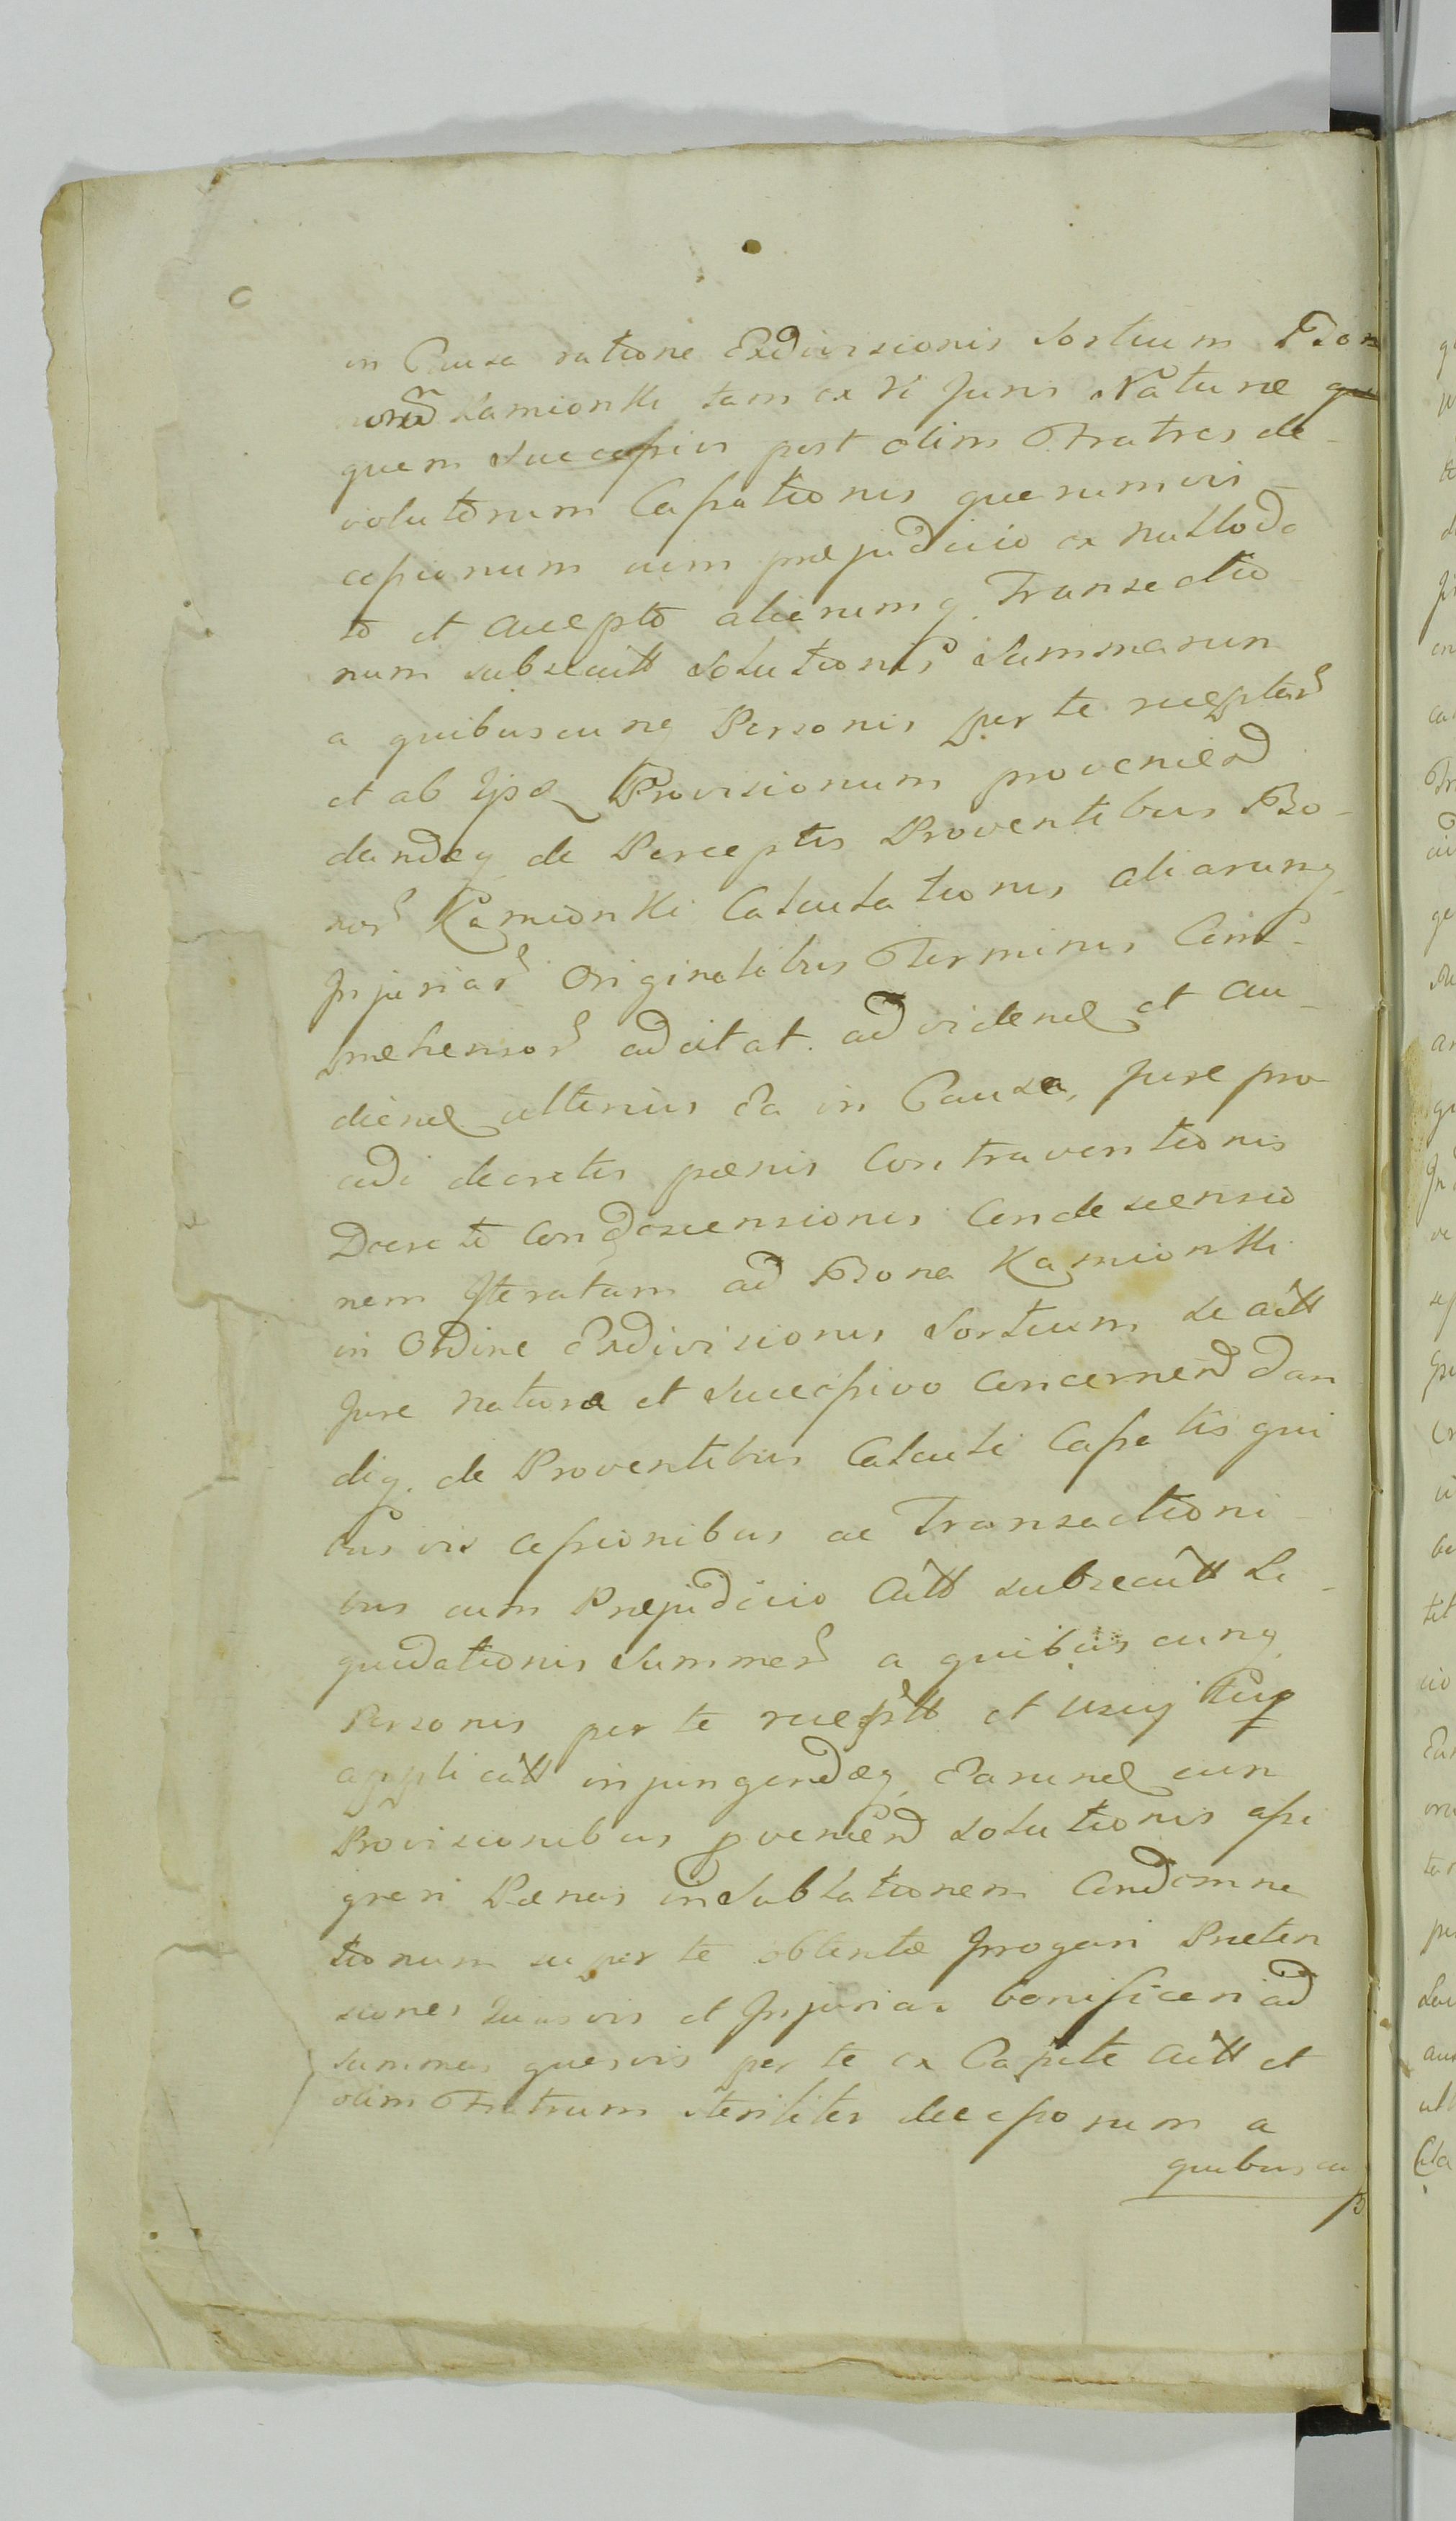 in Causa ratione Exdivisionis Sortium Bon
norũ Kamionki tam ex Vi Juris Naturæ
quem Successivi post olim Fratres de-
volutorum Cassationis quarumvis
cessionum cum præjudicio ex nullo da
to et accepto aliarumq Transactio
num subsecutt Solutionis Summarum
a quibuscunq Personis per te receptar
et ab Ipsis Provisionum proveniend
dandæq de Perceptis Proventibus Bo-
nor Kamionki Calculationis, aliarumq
Injuriar Originalibus Terminis Com-
prehensor adcitat. ad vidend et au-
diend ulterius Ea in Causa, Jure pro
cedi decretis pænis Contraventionis
Decreto Condescensionis Condescensio
nem Iteratam ad Bona Kamionki
in Ordine Exdivisionis Sortium se actt
Jure naturæ et Successivo concernend dan
diq. de Proventibus Calculi Cassatis qui
busvis Cessionibus ac Transactioni-
bus cum Præjudicio Actt subsecutt Li-
quidationis Summar a quibuscunq
Personis per te receptt et usuq tuo
applicatt injungendæq Earund cum
Provisionibus proveniend Solutionis assi
gnari Pænas in Sublationem Condemna
tionum super te obtentæ Irrogari Præten
siones quasvis et Injurias bonificari ad
Summas quasvis per te ex Capite Actt et
olim Fratrum steriliter decessorum a
quibuscu